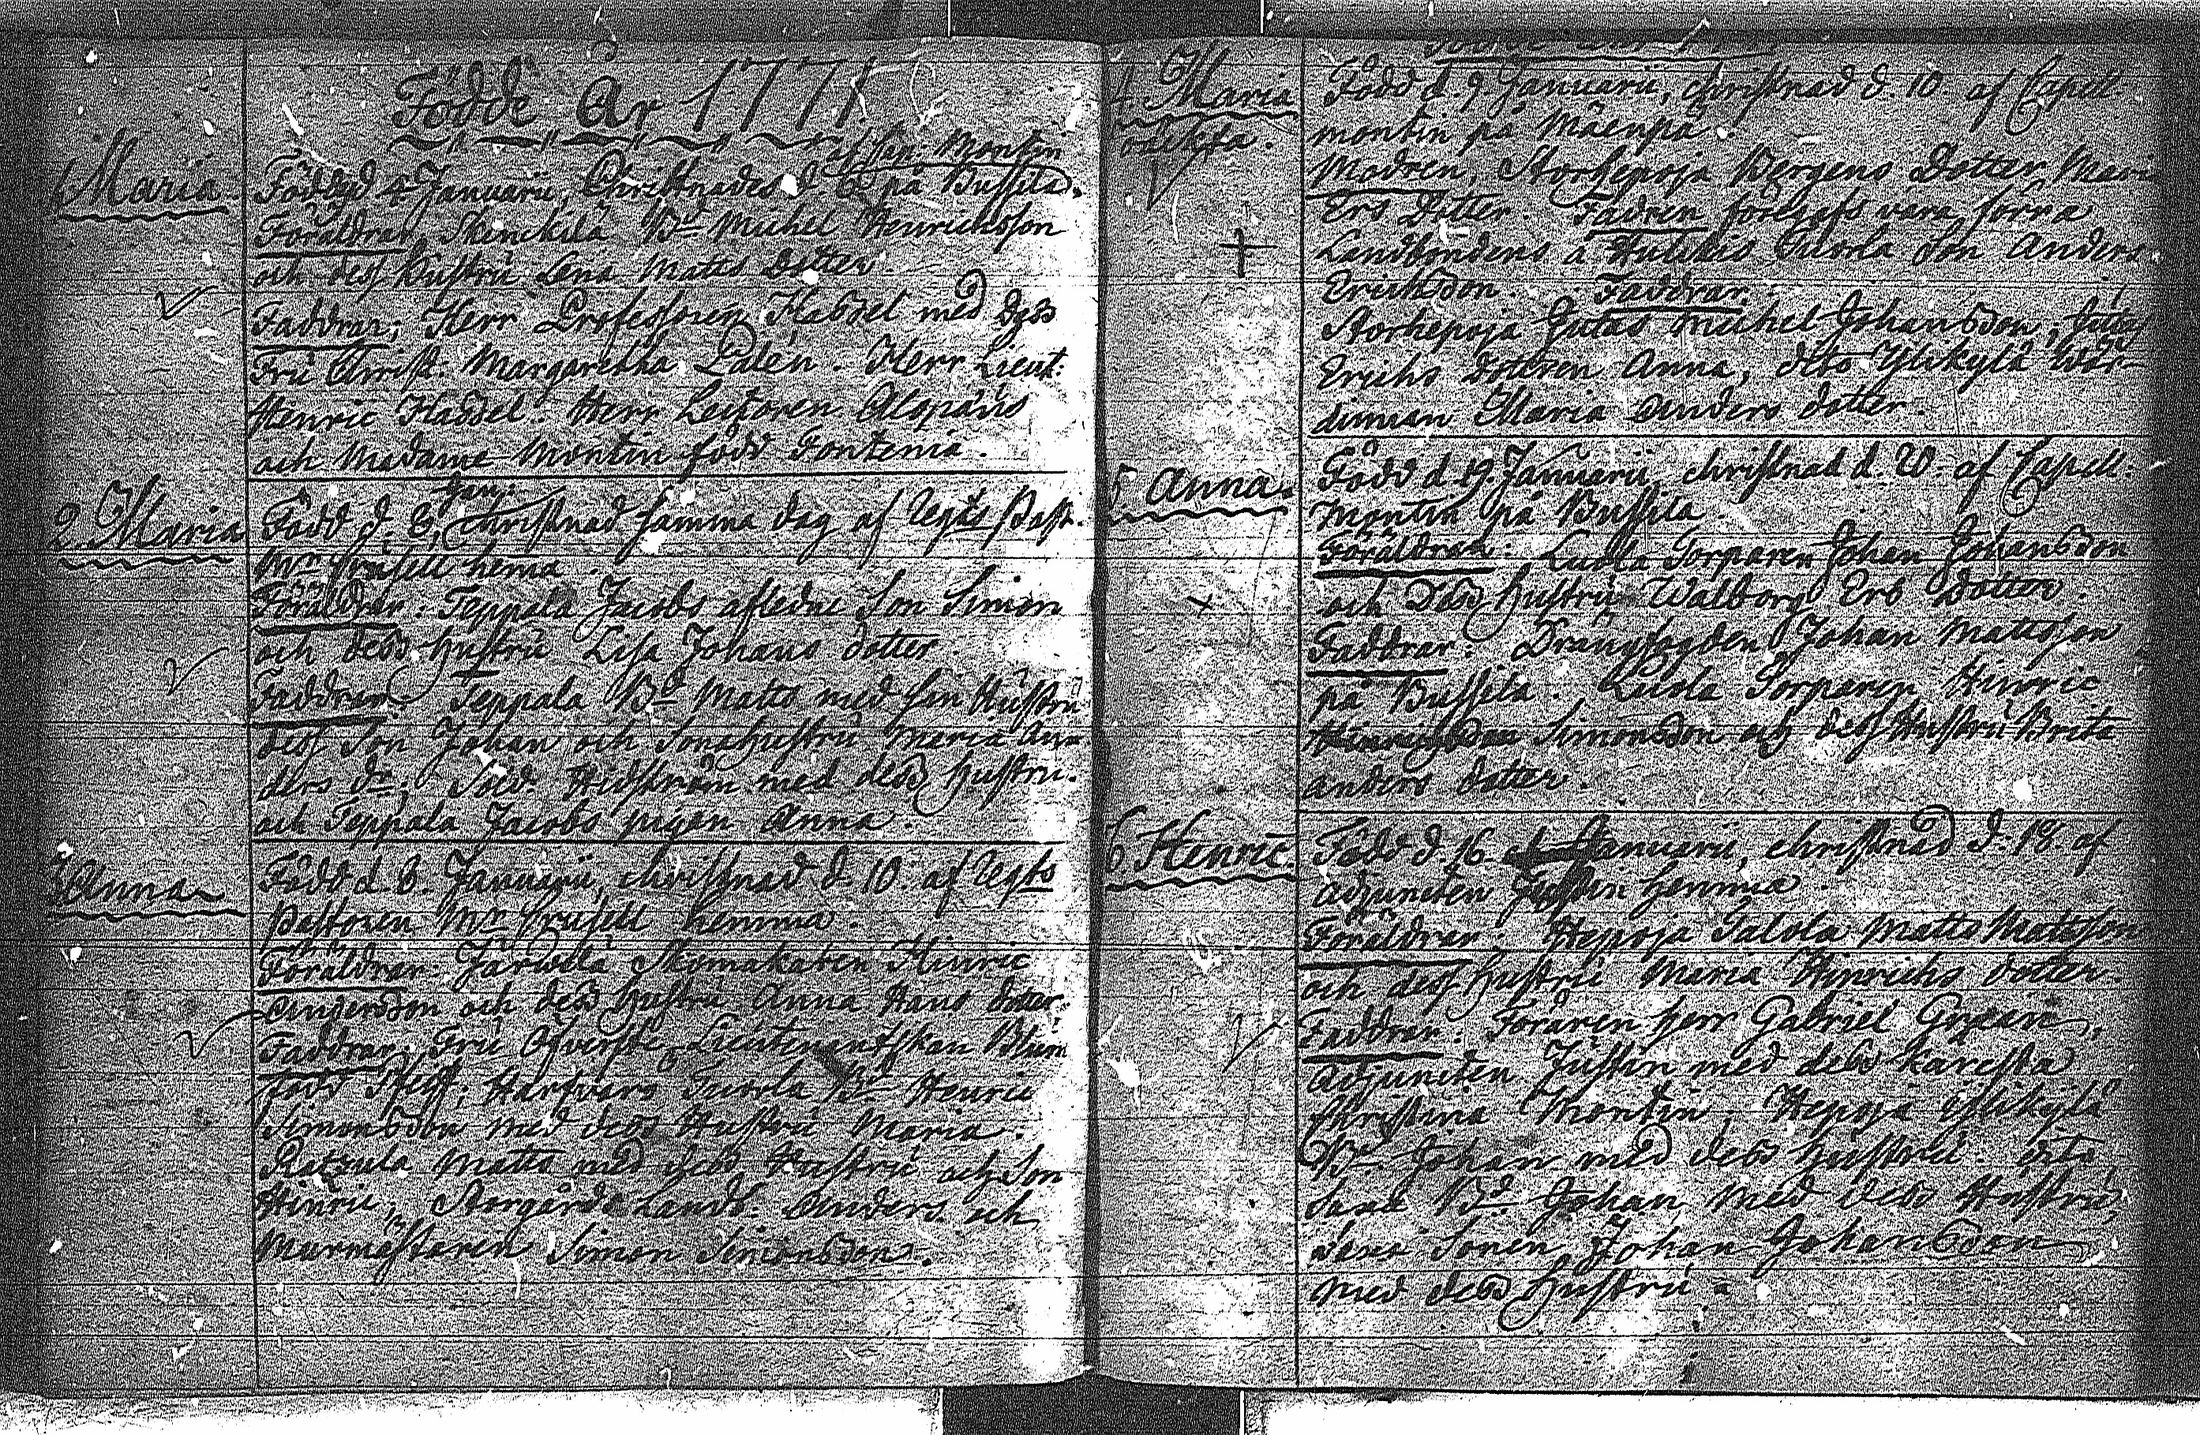 Födde År 1771
af Cap. Montin
1 Maria. Född d. 4 Januarii, Christnades d. 6 på Bussila.
Föräldrar Skenkilä Bd Michel Henrichsson
och dess Hustru Lena Matts Dotter.
Faddrar; Herr Professoren Hassel med dess
Fru Christ. Margaretha Lalén. Herr Lieut:
Henric Hassel. Herr Lectoren Alopæus
och Madame Montin född Fontenia.
Janu:
2 Maria Född d. 6, christnad samma dag af Vgts Past.
Mr hema.
Föräldrar. Teppala Jacobs afledne Son Simon
och dess hustru Lisa Johans dotter.
Faddrar Teppala Bd Matts med sin Hustru
dess Son Johan och Sonahustru Maria An-
ders dr, Sold. Hidström med dess hustru.
och Teppala Jacobs pigan Anna.
3 Anna Född d. 8. Januarii, christnad d. 10. af Vgts
Pastoren Mr hemma.
Föräldrar. Järvelä Skomakaren Hinric
Andersson och dess hustru Anna Hans dotter.
Faddrar, Fru Öfverste Lieutenantskan
född Harfvars Tuorla Bd Henric
Simonsson med dess Hustru Maria.
Ratzula Matts med dess Hustru och Son
Hinric, Storgårds Landb. Anders och
Murmästaren Simon Simonsson.
4 Maria Född d. 9 Januarii, christnad d. 10 af Capell.
oäkta. montin på Mäenpä.
Modren, Storhepoja Bergens Dotter Mari
Ers Dotter Fadren föregafs vara förra
Landbondens å Tuorla Son Anders
Ericksson. Faddrar.
Storhepoja Jutas Michel Johansson, Jutas
Erichs dotren Anna, dito Ylikylä
Maria Anders dotter.
5 Anna. Född d. 19. Januarii, christnad d. 20. af Capell.
Montin på Bussila
Föräldrar: Luola Torparen Johan Johansson
och Dess Hustru Walborg Ers dotter.
Faddrar: Drängfogden Johan Mattsson
på Bussila. Luola Torparen Hinric
Simonsson och dess Hustru Brita
anders dotter.
6 Henric. Född d. 16. Januarii, christnad d. 18 af
Adjuncten Justin hemma.
Föräldrar: Hepoja Talola Matts Mattsson
och dess hustru Maria Hinrichs dotter
Faddrar. Föraren herr Gabriel
Adjuncten Justin med dess käresta
Christina Montin, Hepoja
Bd. Johan med dess hustru.
Bd. Johan med dess Hustru,
Sonen Johan Johansson
med dess hustru